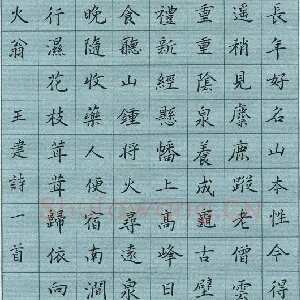 長年好名山本性今得
遥稍見麋鹿蹤老僧雲
重重陰泉養成龜古壁
禮新經懸幡上高峰日
食聽山鍾將火尋遠泉
晚隨收藥人便宿南澗
行濕花枝茸茸歸依向
火翁 王建詩一首